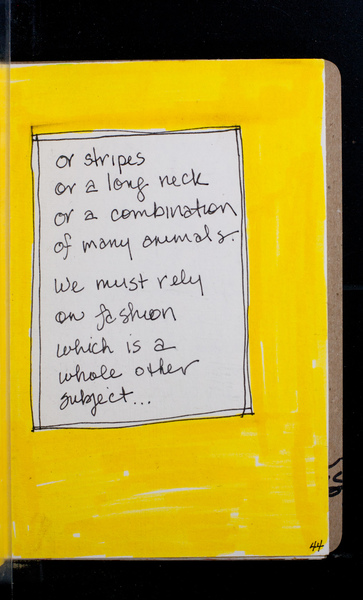 or stripes
or a long neck
or a combination
of many animals.
We must rely
on fashion
which is a
whole other
subject...
44